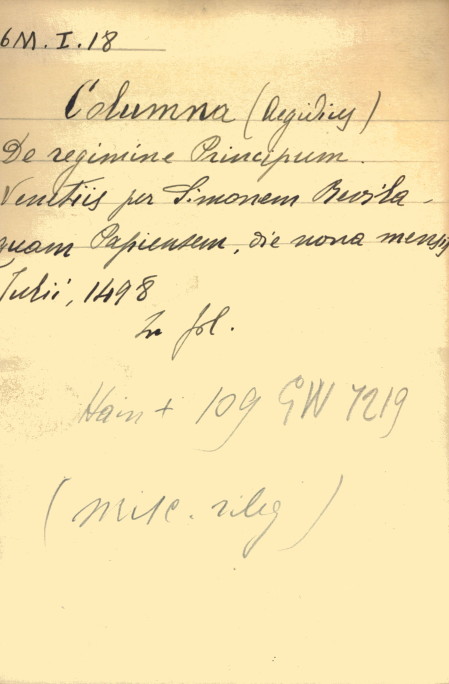 6M. I. 18
Columna (Aegidius)
De regimine Principum.
Venetiis per Simonem Bevila-
quam Papiensem, die nona mensis
Julii, 1498
In fol.
Hain + 109 GW 7219
(misc. rileg)